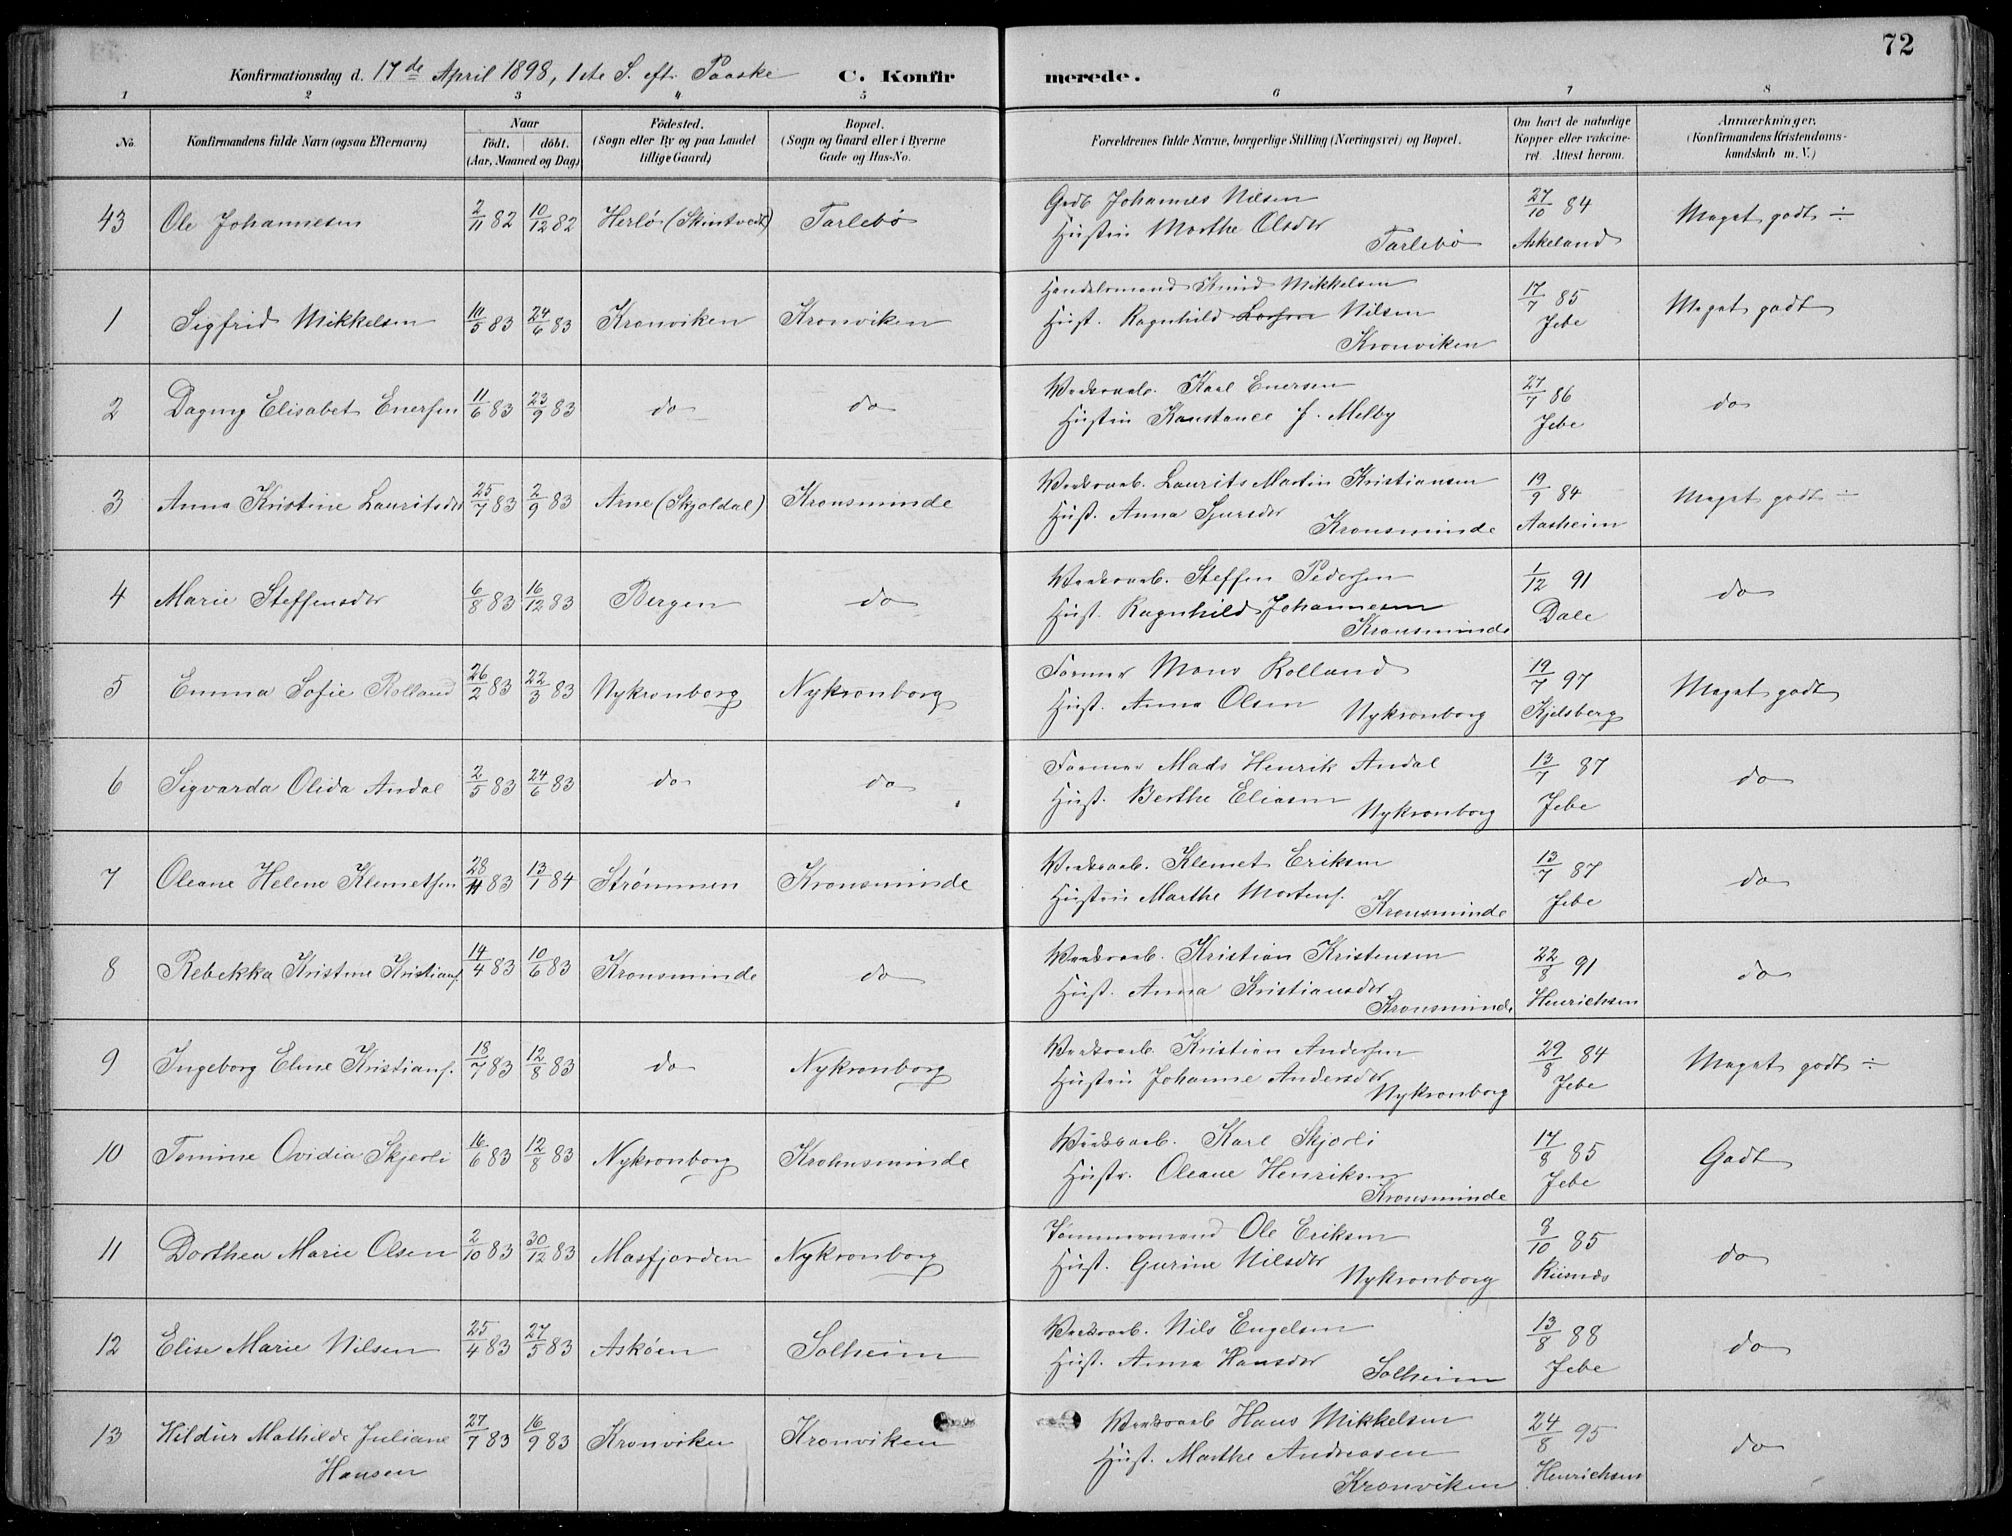 72
Konfirmationsdag d. 17de April 1898, 1ste S. eft. Paaske C. Konfirmerede.
1 2 3 4 5 6 7 8
No. Konfirmandens fulde Navn (ogsaa Efternavn) Naar født. døbt. (Aar, Maaned og Dag) Fødested. (Sogn eller By og paa Landet tillige Gaard) Bopæl. (Sogn og Gaard eller i Byerne Gade og Hus-No. Forældrenes fulde Navne, borgerlige Stilling (Næringsvei) og Bopæl. Om havt de naturlige Kopper eller vakcineret. Attest herom. Anmærkninger. (Konfirmandens Kristendomskundskab m. V.)
43 Ole Johannesen 2/11 82 10/12 82 Herlø (Skintvedt) Tarlebø Gdb Johannes Nilsen 27/10 84 Meget godt ÷
Hustru Marthe Olsdr Tarlebø Askeland
1 Sigfrid Mikkelsen 10/5 83 24/6 83 Kronviken Kronviken Handelsmand Knud Mikkelsen 17/7 85 Meget godt
Hust. Ragnhild Larsen Nilsen Jebe
Kronviken
2 Dagny Elisabet Enersen 11/6 83 23/9 83 do do Værksarb. Karl Enersen 27/7 86 do
Hustru Konstance f. Melby Jebe
3 Anna Kristine Lauritsdr 25/7 83 2/9 83 Arne (Skjoldal) Kronsminde Værksarb. Laurits Martin Kristiansen 19/9 84 Meget godt ÷
Hust. Anna Sjursdr Kronsminde Aasheim
4 Marie Steffensdr 6/8 83 16/12 83 Bergen do Værksarb. Steffen Pedersen 1/12 91 do
Hust. Ragnhild Johannesen Dale
Kronsminde
5 Emma Sofie Rolland 26/2 83 22/3 83 Nykronborg Nykronborg Former Mons Rolland 19/7 97 Meget godt
Hust. Anna Olsen Nykronborg Kjelsberg
6 Sigvarda Olida Andal 2/5 83 24/6 83 do do Former Mads Henrik Andal 13/7 87 do
Hust. Berthe Eliasen Nykronborg Jebe
7 Oleane Helene Klemetsen 28/11 83 13/1 84 Strømmen Kronsminde Værksarb. Klemet Eriksen 13/7 87 do
Hustru Marthe Mortens. Kronsminde Jebe
8 Rebekka Kristine Kristians. 14/4 83 10/6 83 Kronsminde do Værksarb. Kristian Kristensen 22/8 91 do
Hust. Anna Kristiansdr Kronsminde Henrichsen
9 Ingeborg Eline Kristians. 18/7 83 12/8 83 do Nykronborg Værksarb. Kristian Andersen 29/8 84 Meget godt ÷
Hustru Johanne Andersdr Nykronborg Jebe
10 Tomine Ovidia Skjerli 16/6 83 12/8 83 Nykronborg Krohnsminde Værksarb. Karl Skjerli 17/8 85 Godt
Hustr. Oleane Henriksen Kronsminde Jebe
11 Dorthea Marie Olsen 2/10 83 30/12 83 Masfjorden Nykronborg Tømmermand Ole Eriksen 9/10 85 do
Hust. Gurine Nilsdr Nykronborg Risnes
12 Elise Marie Nilsen 25/4 83 27/5 83 Askøen Solheim Værksarb. Nils Engelsen 13/8 88 do
Hust. Anna Hansdr Solheim Jebe
13 Hildur Mathilde Juliane 27/7 83 16/9 83 Kronviken Kronviken Værksarb Hans Mikkelsen 24/8 95 do
Hansen Hust. Marthe Andreasen Henrichsen
Kronviken